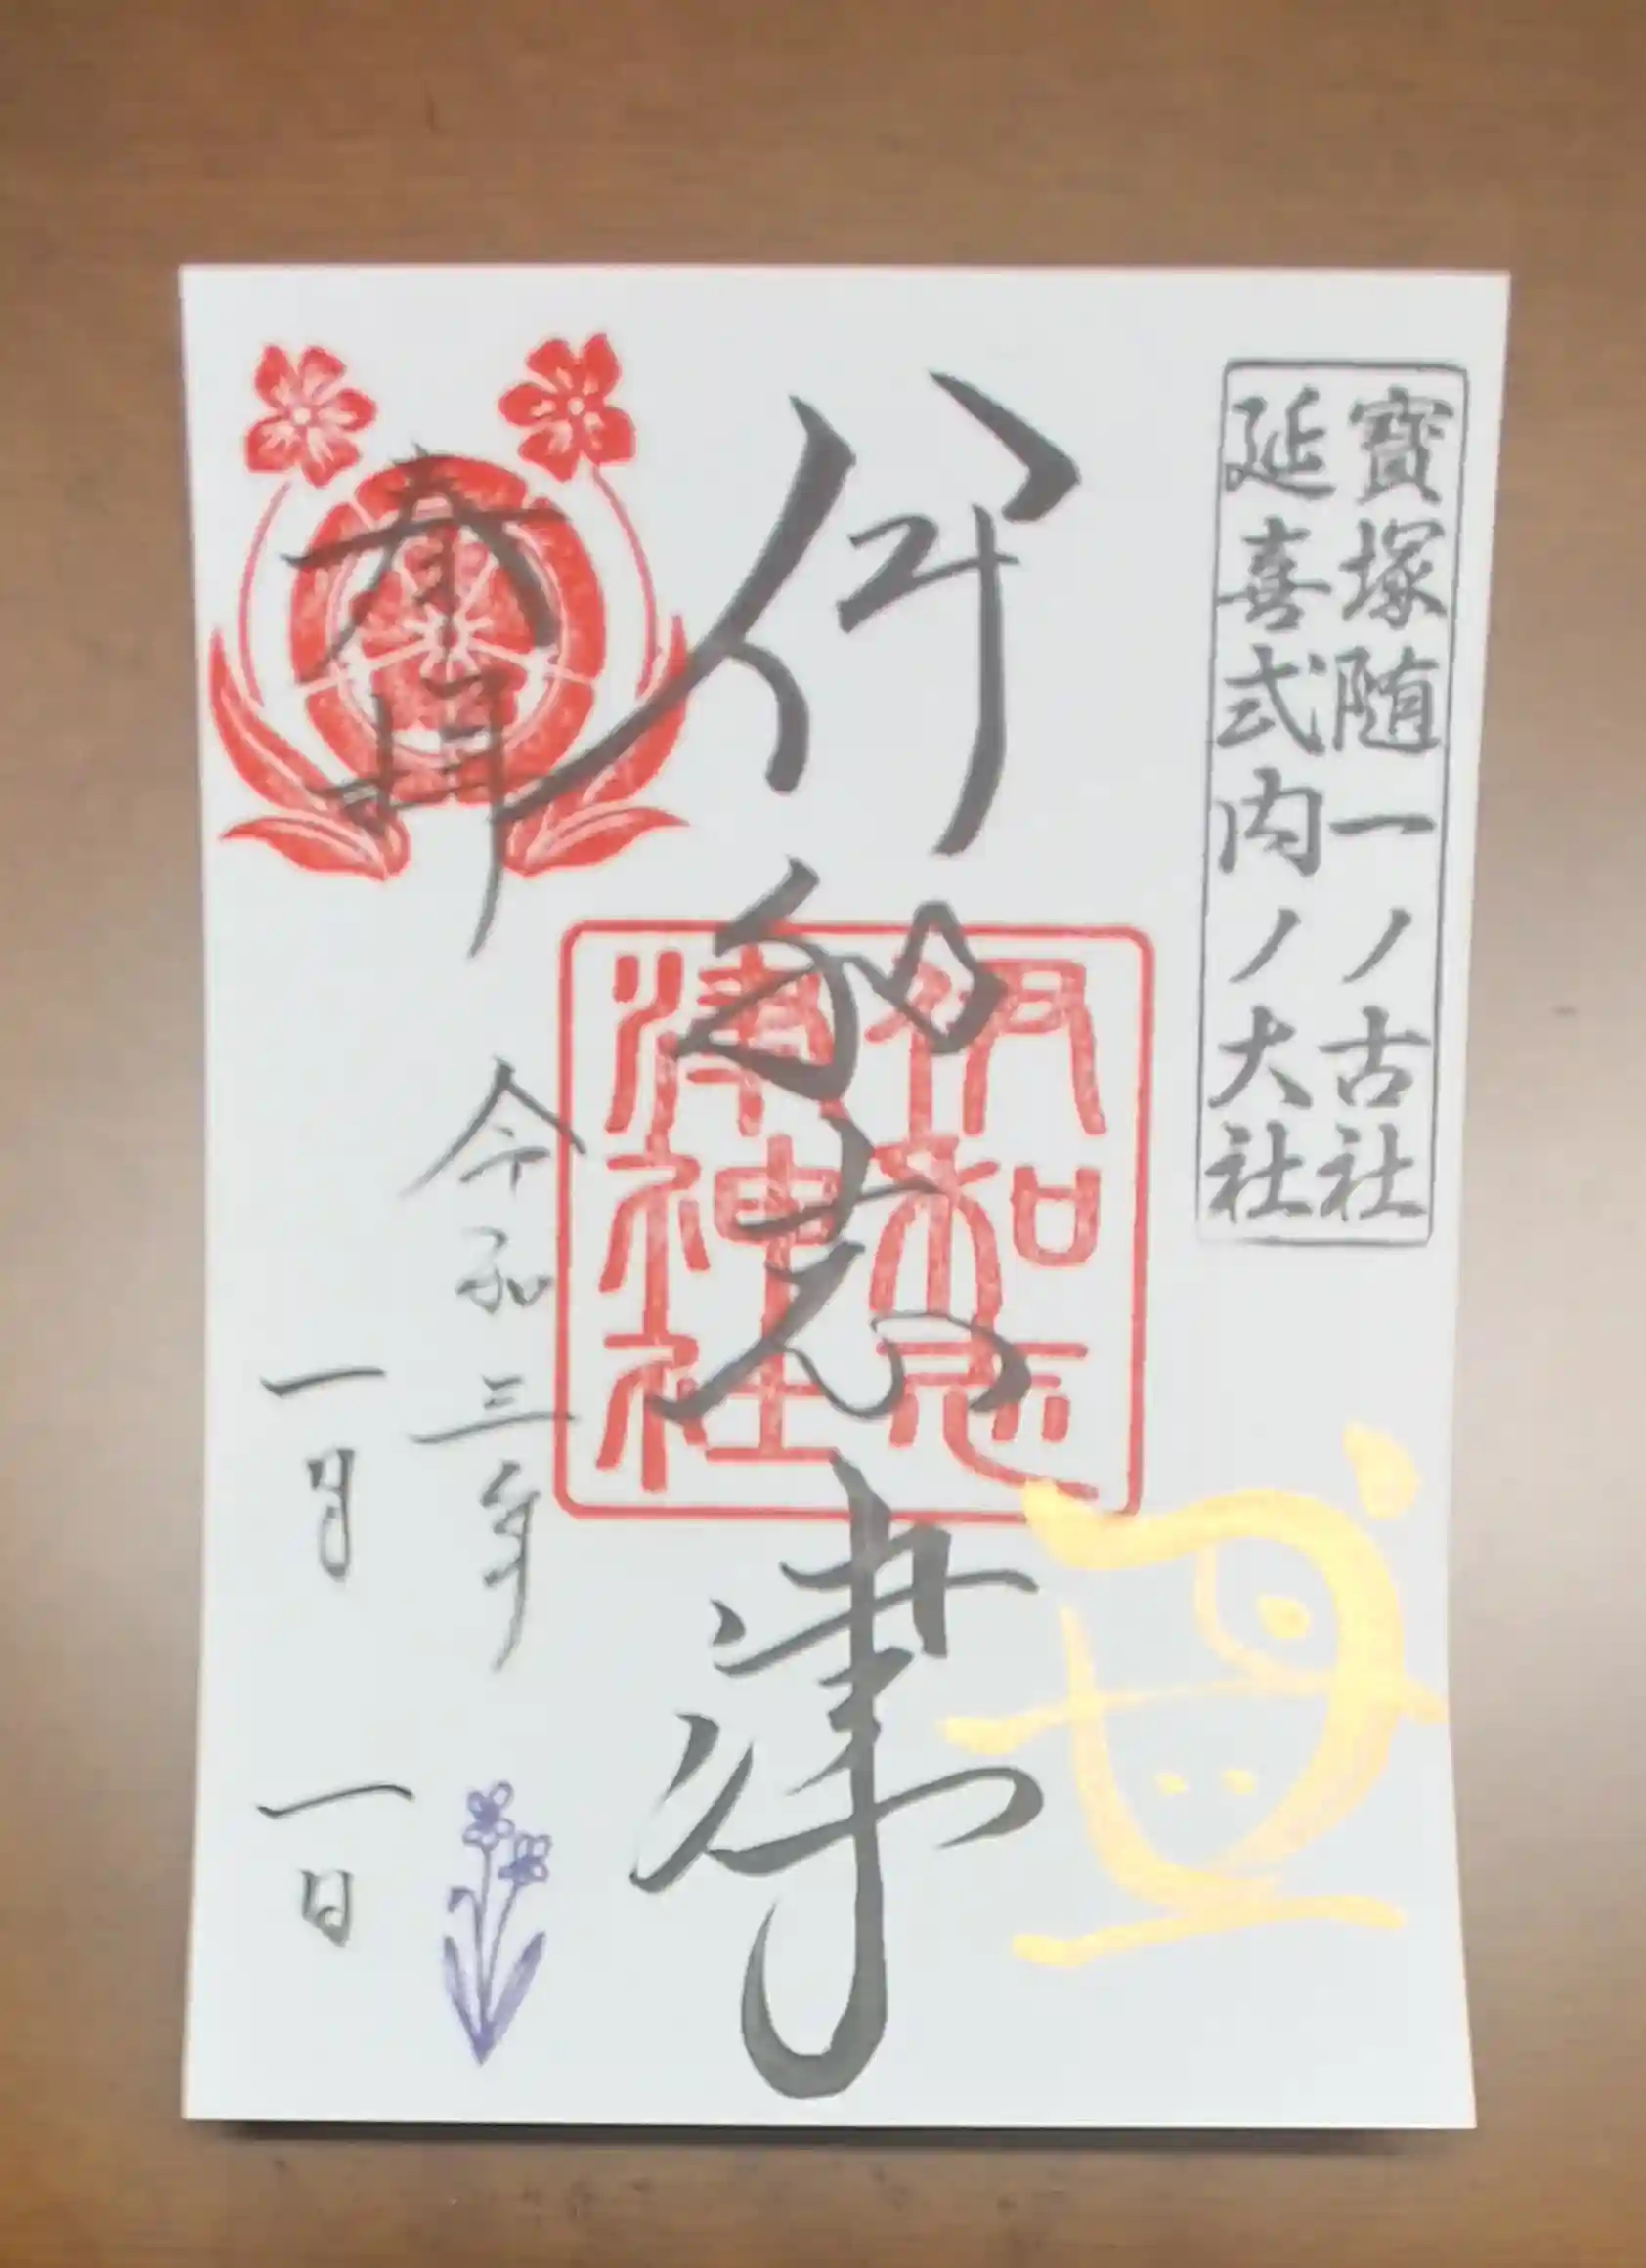 寶塚随一ノ古社
延喜式内ノ大社
伊和志津
伊和志
津神社
丑
奉拝
令和三年
一月一日